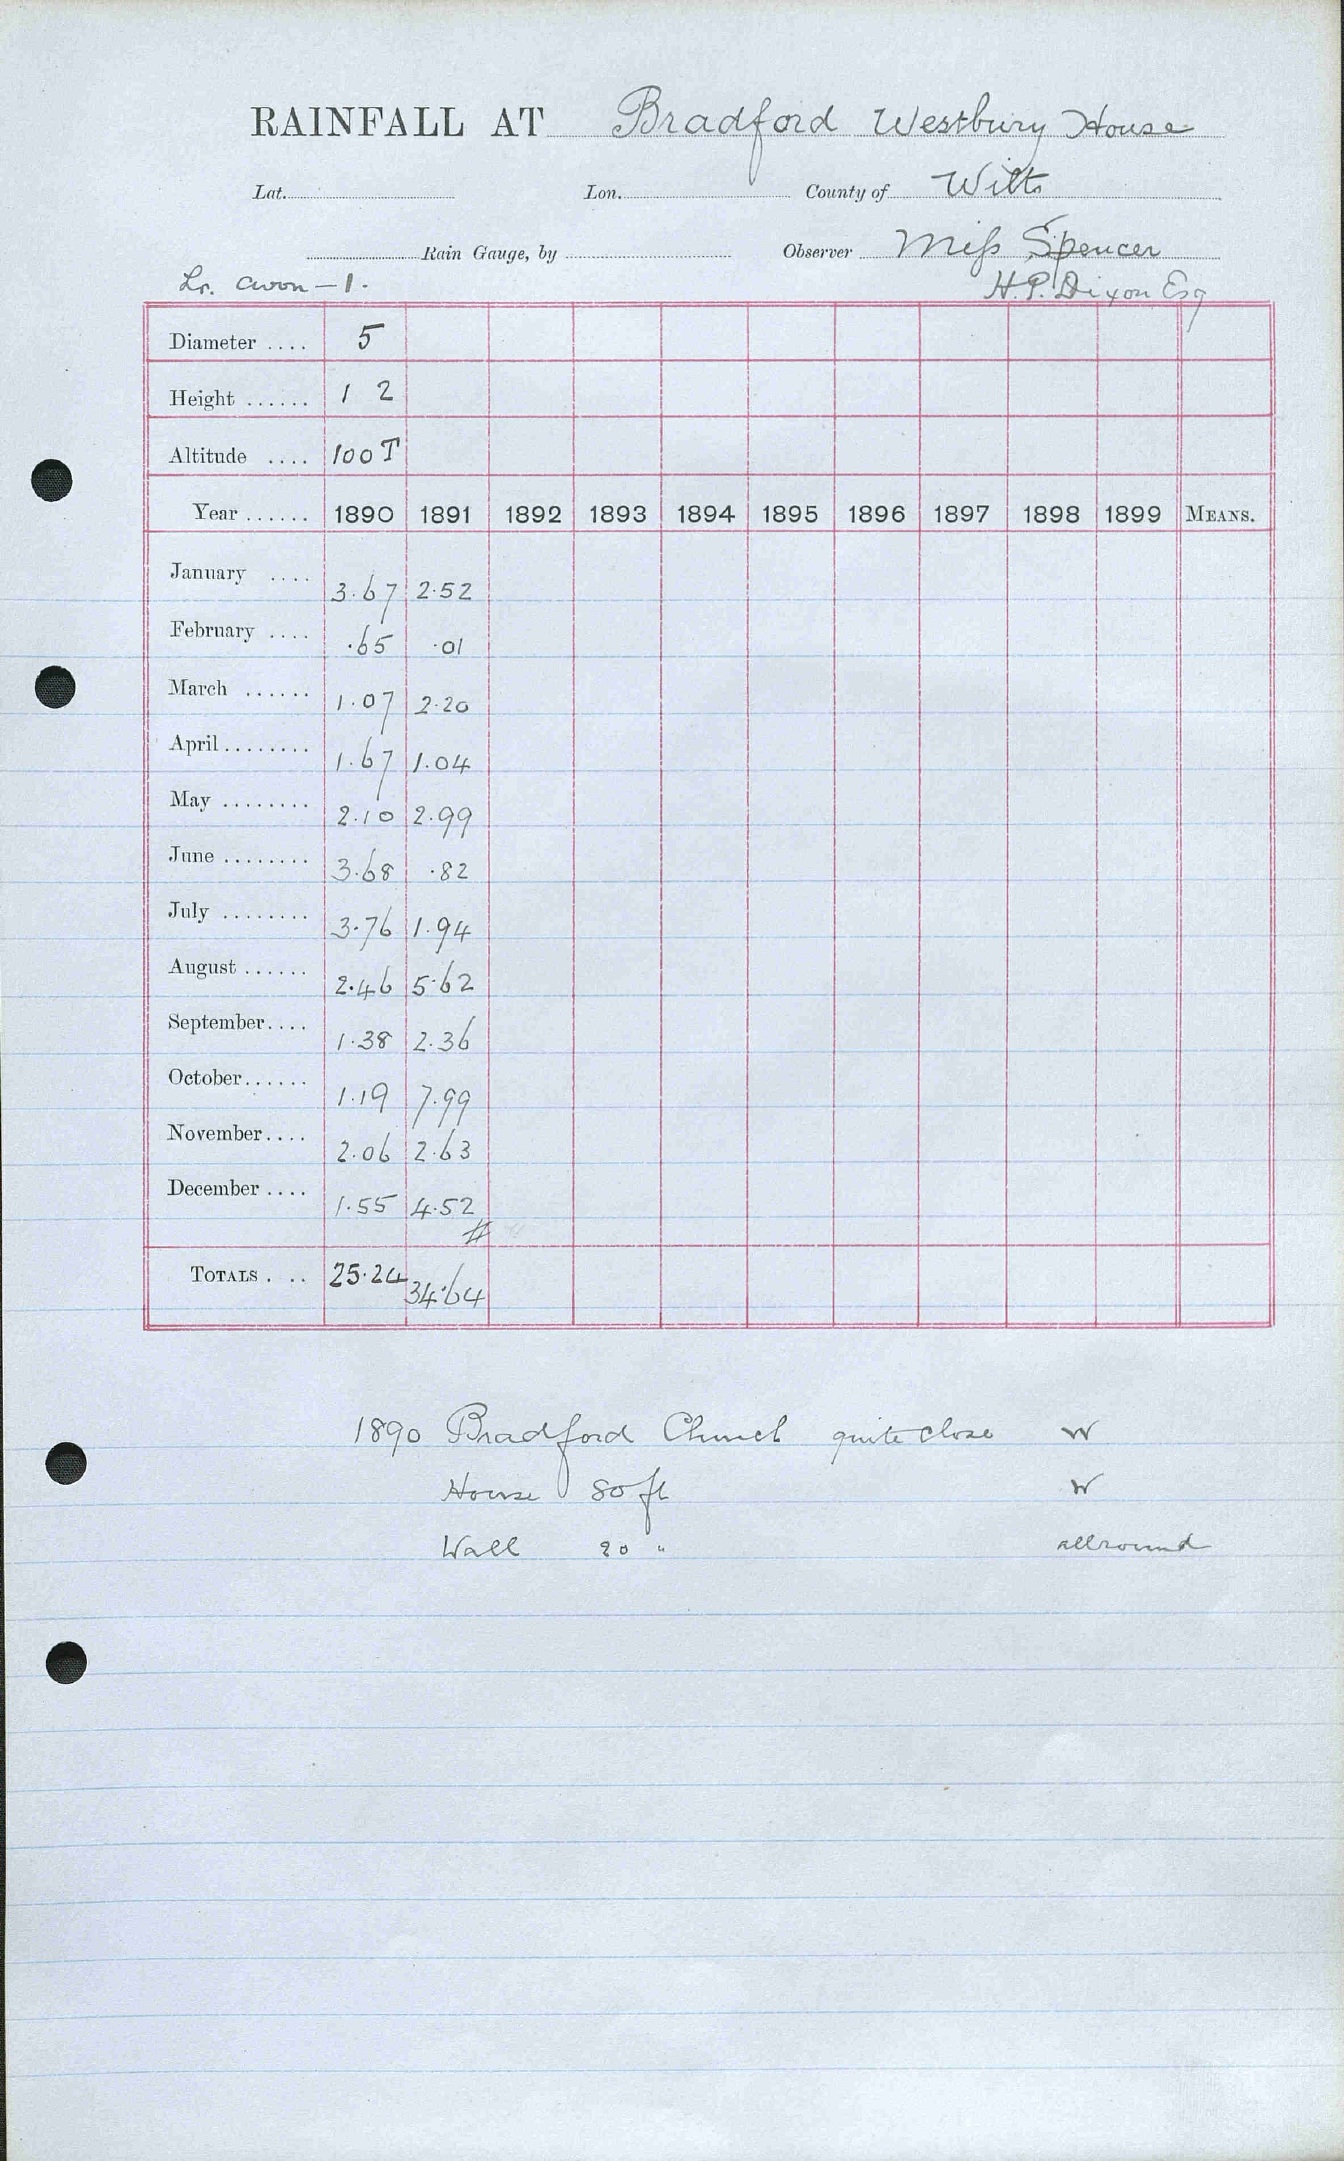 RAINFALL AT Bradford Westbury House
Lat. Lon. County of Wilts
Rain Gauge, by Observer Miss Spencer
Lr. Avon – 1. H. P. Dixon Esq
Diameter .... 5
Height ...... 1 2
Altitude .... 100 T
Year ...... 1890 1891 1892 1893 1894 1895 1896 1897 1898 1899 MEANS.
January .... 3.67 2.52
February .... .65 .01
March ...... 1.07 2.20
April ........ 1.67 1.04
May ........ 2.10 2.99
June ........ 3.68 .82
July ........ 3.76 1.94
August ...... 2.46 5.62
September.... 1.38 2.36
October...... 1.19 7.99
November.... 2.06 2.63
December .... 1.55 4.52
#
TOTALS . .. 25.24 34.64
1890 Bradford Church quite close W
House 80 ft W
Wall 20 " all round